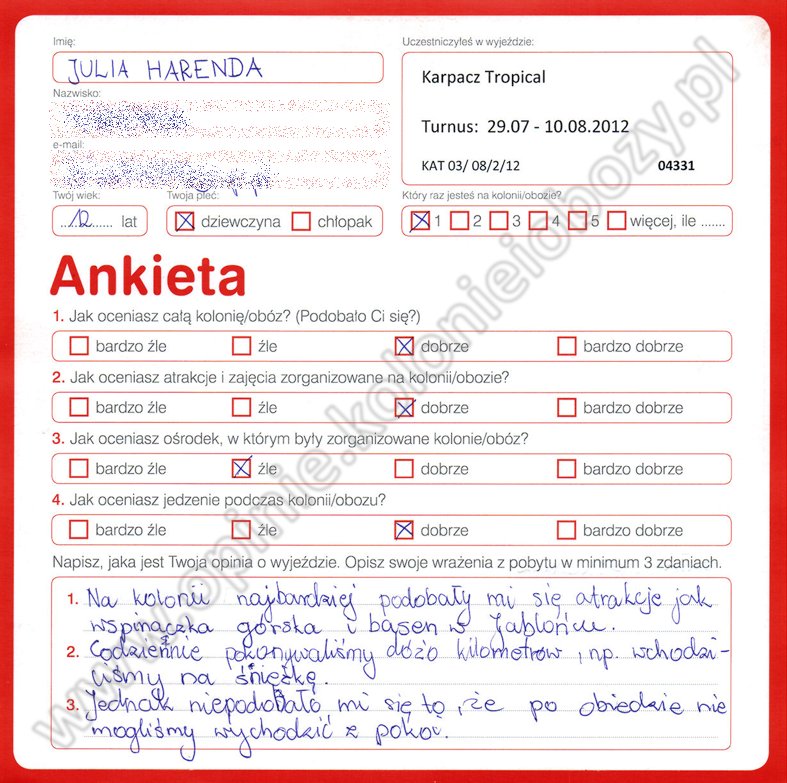 Imię:
JULIA HARENDA
Nazwisko:
e-mail:
Twój wiek:
12 lat
Twoja płeć:
dziewczyna chłopak
Uczestniczyłeś w wyjeździe:
Karpacz Tropical
Turnus: 29.07 - 10.08.2012
KAT 03/ 08/2/12 04331
Który raz jesteś na kolonii/obozie?
1 2 3 4 5 więcej, ile .......
Ankieta
1. Jak oceniasz całą kolonię/obóz? (Podobało Ci się?)
bardzo źle źle dobrze bardzo dobrze
2. Jak oceniasz atrakcje i zajęcia zorganizowane na kolonii/obozie?
bardzo źle źle dobrze bardzo dobrze
3. Jak oceniasz ośrodek, w którym były zorganizowane kolonie/obóz?
bardzo źle źle dobrze bardzo dobrze
4. Jak oceniasz jedzenie podczas kolonii/obozu?
bardzo źle źle dobrze bardzo dobrze
Napisz, jaka jest Twoja opinia o wyjeździe. Opisz swoje wrażenia z pobytu w minimum 3 zdaniach.
1. Na kolonii najbardziej podobały mi się atrakcje jak
wspinaczka górska i basen w Jabłońcu.
2. Codziennie pokonywaliśmy dóżo kilometrów, np. wchodzi-
liśmy na śnieżkę.
3. Jednak niepodobało mi się to, że po obiedzie nie
mogliśmy wychodzić z pokoi.
www.opinie.kolonieiobozy.pl